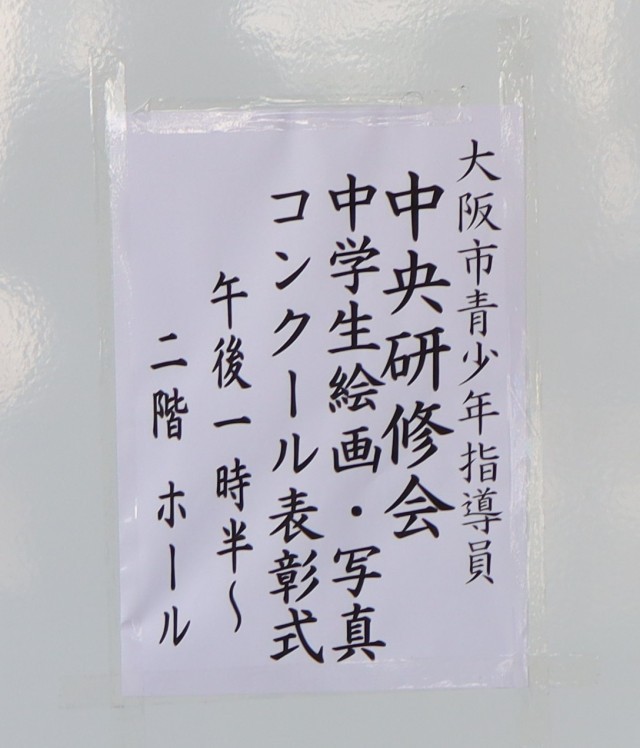 大阪市青少年指導員
中央研修会
中学生絵画・写真
コンクール表彰式
午後一時半〜
二階 ホール